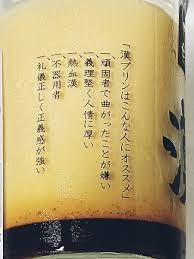 「漢プリンはこんな人にオススメ」
一頑固者で曲がったことが嫌い
一義理堅く人情に厚い
一熱血漢
一不器用者
一礼儀正しく正義感が強い